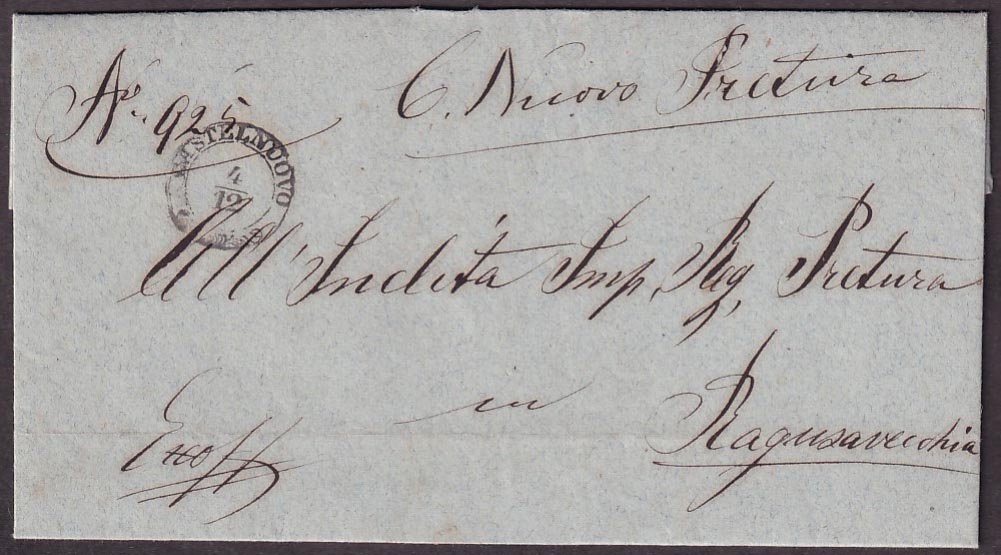 No. 925
C. Nuovo Pretura
CASTELNUOVO
4
12
All'Inclita Imp. Reg. Pretura
in
Ragusavecchia
Exoff